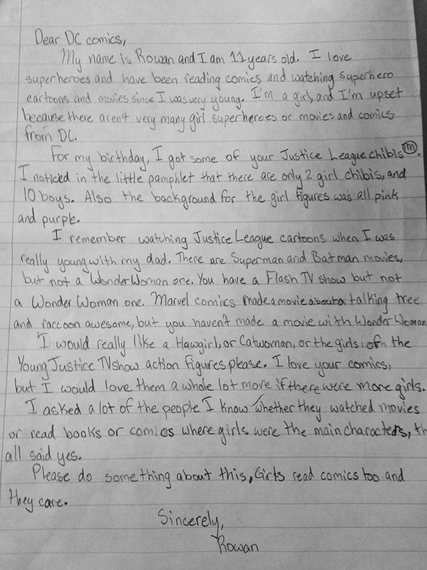 Dear DC comics,
My name is Rowan and I am 11 years old. I love
superheroes and have been reading comics and watching superhero
cartoons and movies since I was very young. I'm a girl, and I'm upset
because there aren't very many girl superheroes or movies and comics
from DC.
For my birthday, I got some of your Justice League chibis ™.
I noticed in the little pamphlet that there are only 2 girl chibis, and
10 boys. Also the background for the girl figures was all pink
and purple.
I remember watching Justice League cartoons when I was
really young with my dad. There are Superman and Batman movies,
but not a Wonder Woman one. You have a Flash TV show but not
a Wonder Woman one. Marvel comics made a movie about a talking tree
and raccoon awesome, but you haven't made a movie with Wonder Woman
I would really like a Hawgirl, or Catwoman, or the girls of the
Young Justice TV show action figures please. I love your comics,
but I would love them a whole lot more if there were more girls.
I acked a lot of the people I know whether they watched movies
or read books or comics where girls were the main characters, th
all said yes.
Please do something about this, Girls read comics too and
they care.
Sincerely,
Rowan